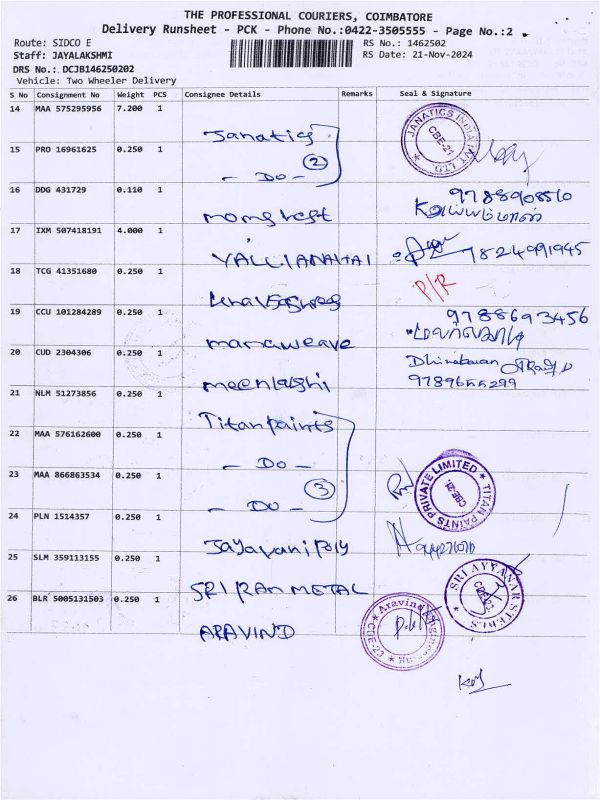 THE PROFESSIONAL COURIERS, COIMBATORE
Delivery Runsheet - PCK - Phone No.:0422-3505555 - Page No.:2
Route: SIDCO E
RS No.: 1462502
Staff: JAYALAKSHMI
RS Date: 21-Nov-2024
DRS No.: DCJB146250202
Vehicle: Two Wheeler Delivery
S No Consignment No Weight PCS Consignee Details Remarks Seal & Signature
14 MAA 575295956 7.200 1 Janatics
JANATICS INDIA PVT. LTD. CBE-21
15 PRO 16961625 0.250 1 - Do - 2
16 DDG 431729 0.110 1 momsrest 9788908510
17 IXM 507418191 4.000 1 VALLIANAHAI 7824991945
18 TCG 41351680 0.250 1 P/R
19 CCU 101284289 0.250 1 manaweave 9788693456
20 CUD 2304306 0.250 1 meenlashi Dhinakaran
9789655299
21 NLM 51273856 0.250 1 Titan paints
22 MAA 576162600 0.250 1 - Do -
23 MAA 866863534 0.250 1 - Do - 3
TITAN PAINTS PRIVATE LIMITED CBE-21.
24 PLN 1514357 0.250 1 Jayavani Poly
25 SLM 359113155 0.250 1 SRI RAM METAL
SRI AYYANAR STEELS
26 BLR 5005131503 0.250 1 ARAVIND
Aravind Engineering CBE-23